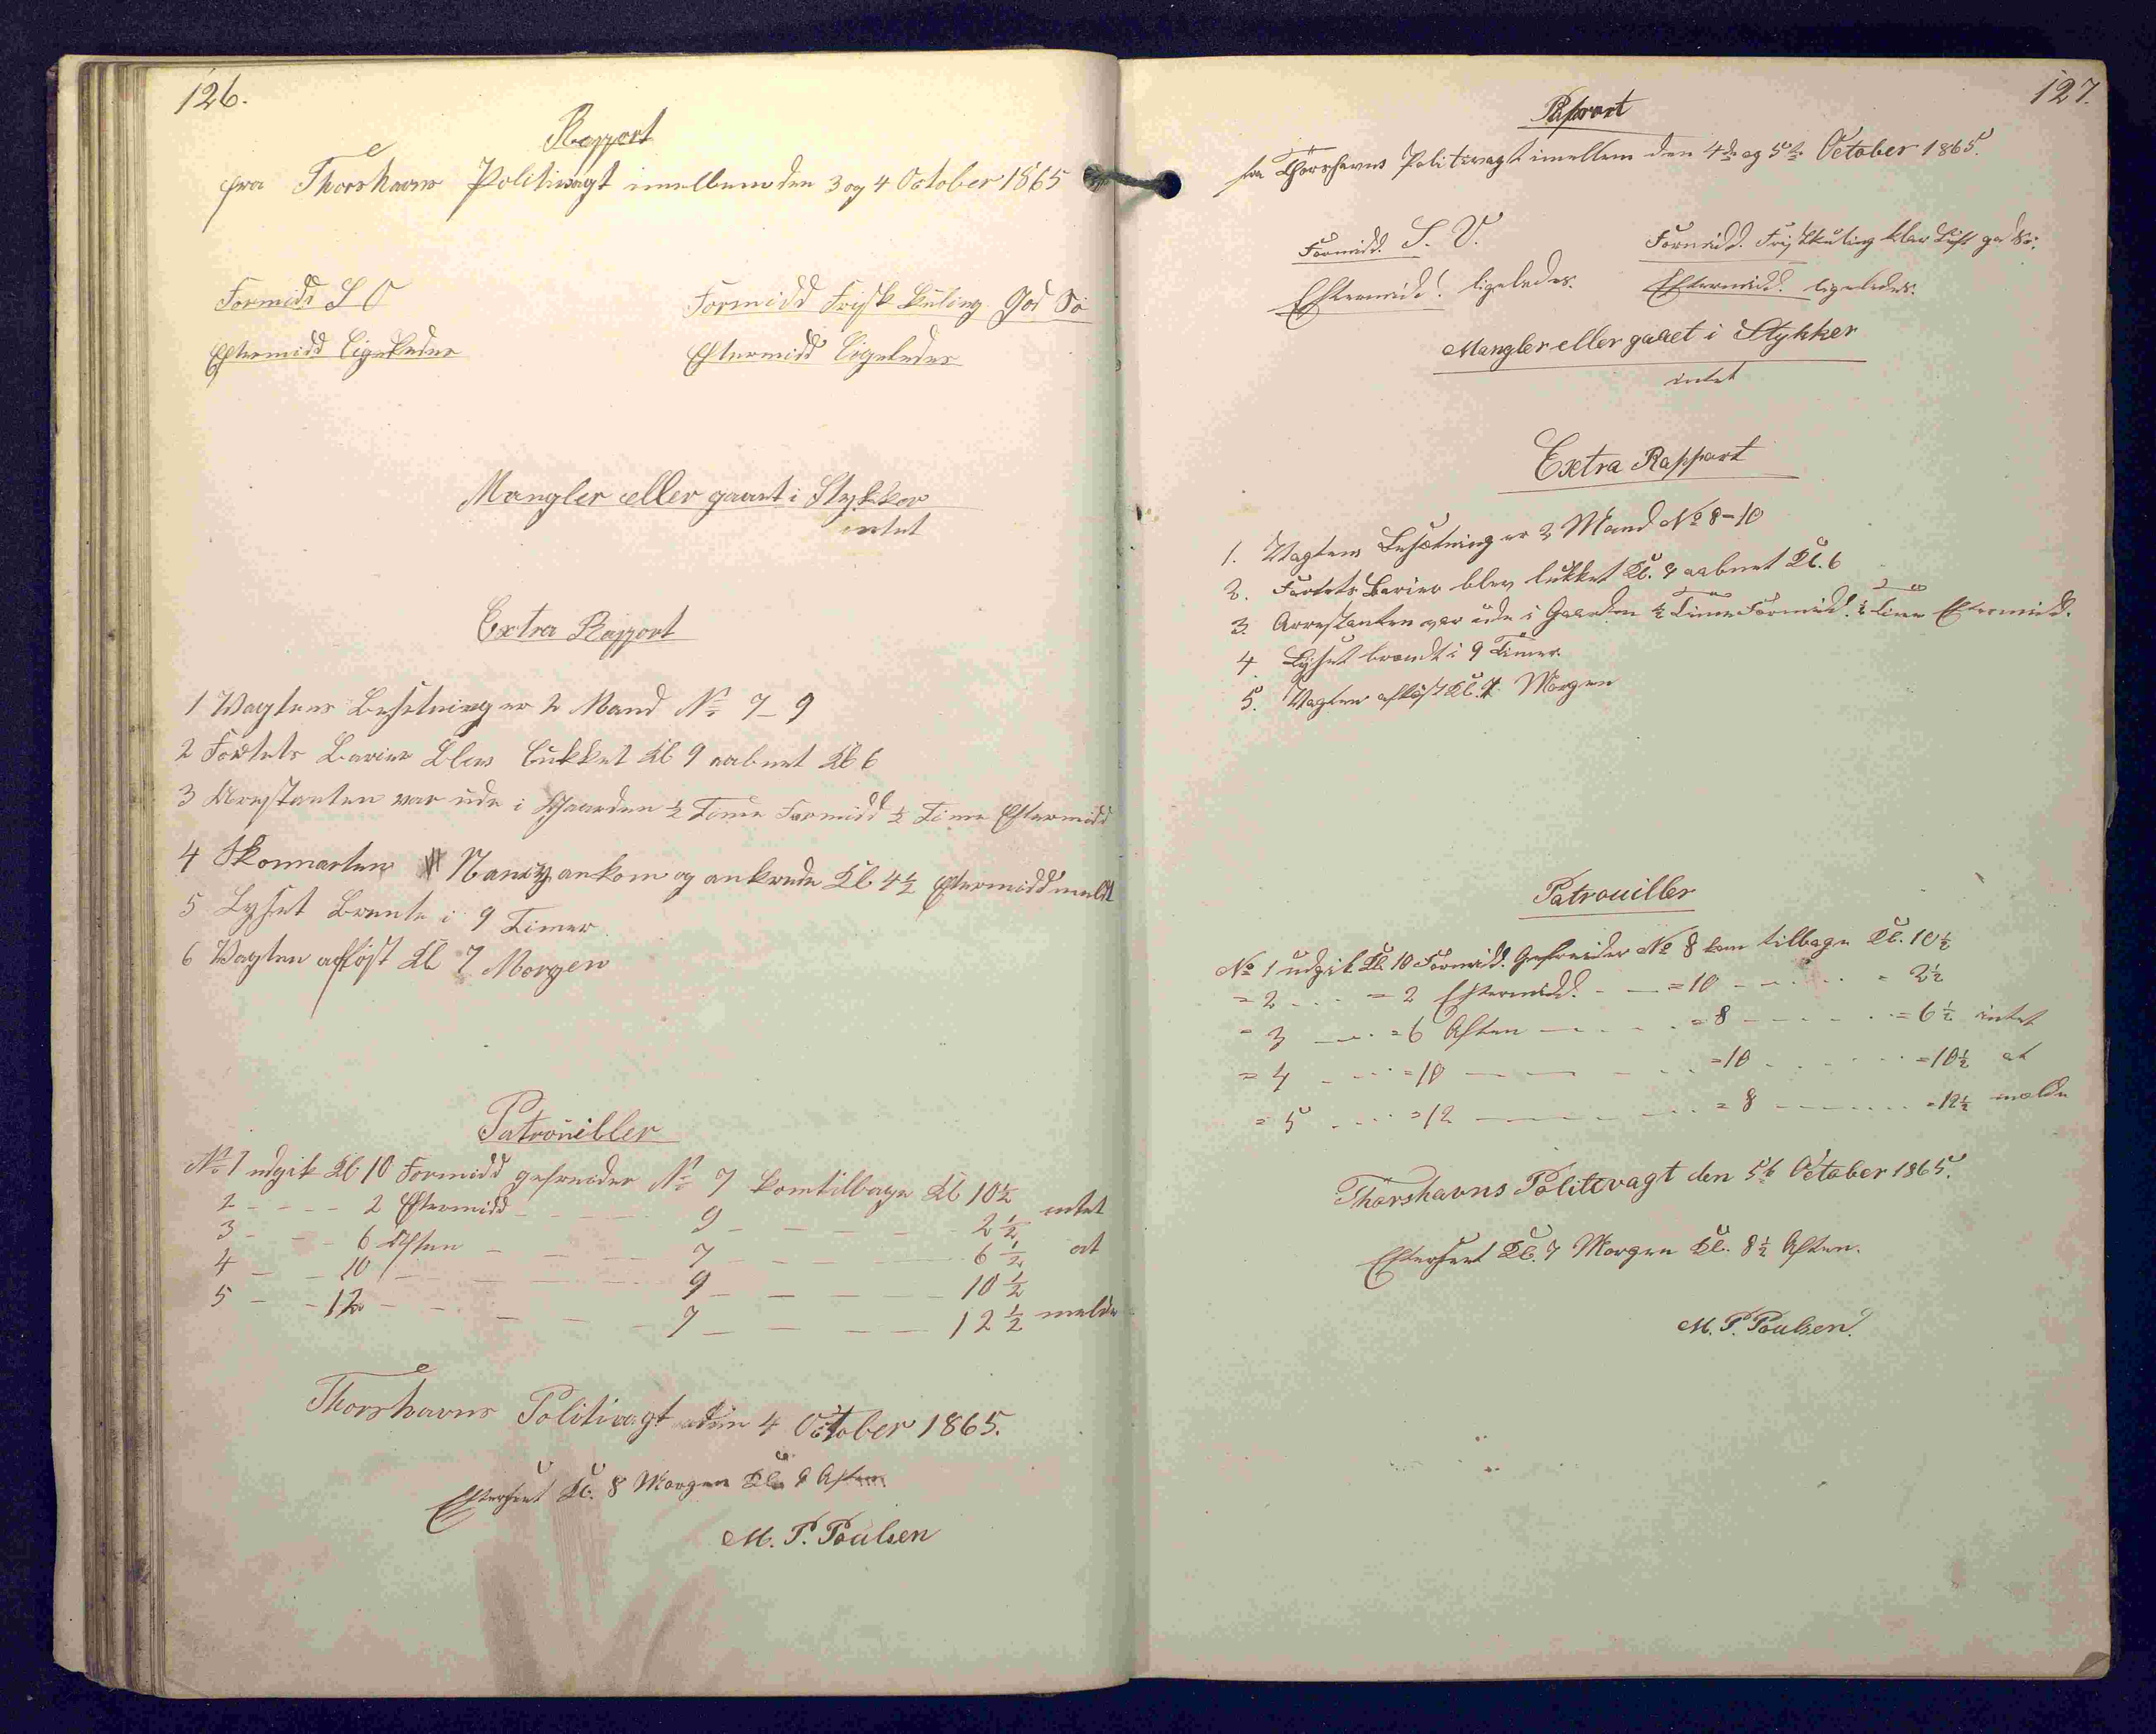 126.
Rapport
fra Thorshavns Politivagt imellem den 3 og 4 October 1865
Formidd S O
Formidd Frisk Kuling God Sö
Eftermidd Ligeledes
Eftermidd Ligeledes
Mangler eller gaaet i Stykker
intet
Extra Rapport
1 Vagtens Besetning er 2 Mand No 7-9
2 Fortets Barier Blev lukket Kl 9 aabnet Kl 6
3 Arrestanten var ude i Gaarden ½ Time Formidd ½ Time Eftermidd
4 Skonnarten Nancy ankom og ankrede Kl 4½ Eftermidd meldt
5 Lyset Brente i 9 Timer
6 Vagten aflöst Kl 7 Morgen
Patrouiller
No 1 udgik Kl 10 Formidd gefreider No 7 kom tilbage Kl 10½ intet
2 - - - - 2 Eftermidd - - - - 9 - - - - 2½
3 - - - 6 Aften - - - - 7 - - - - 6½ at
4 - - 10 - - - - 9 - - - - 10½
5 - - 12 - - - - 7 - - - - 12½ melde
Thorshavns Politivagt den 4 October 1865.
Efterseet Kl. 8 Morgen Kl. 9 Aften
M. P. Poulsen
127.
Rapport
fra Thorshavns Politivagt imellem den 4de og 5te October 1865.
Formidd. S. V.
Formidd. Frisk Kuling klar Luft god Sö.
Eftermidd. ligeledes.
Eftermidd. ligeledes.
Mangler eller gaaet i Stykker
intet
Extra Rapport
1. Vagtens Besætning er 2 Mand No 8-10
2. Fortets Barier blev lukket Kl. 9 aabnet Kl. 6
3. Arrestanten var ude i Gaarden ½ Time Formidd. ½ Time Eftermidd.
4. Lyset brændt i 9 Timer
5. Vagten aflöst Kl. 7. Morgen
Patrouiller
No 1 udgik Kl. 10 Formidd. Gefreider No 8 kom tilbage Kl. 10½
= 2 - - - = 2 Eftermidd. - - = 10 - - - - = 2½
= 3 - - - = 6 Aften - - - - = 8 - - - - = 6½ intet
= 4 - - - = 10 - - - - = 10 - - - - = 10½ at
= 5 - - - = 12 - - - - = 8 - - - - = 12½ melde
Thorshavns Politivagt den 5te October 1865.
Efterseet Kl. 7 Morgen Kl. 8½ Aften.
M. P. Poulsen.